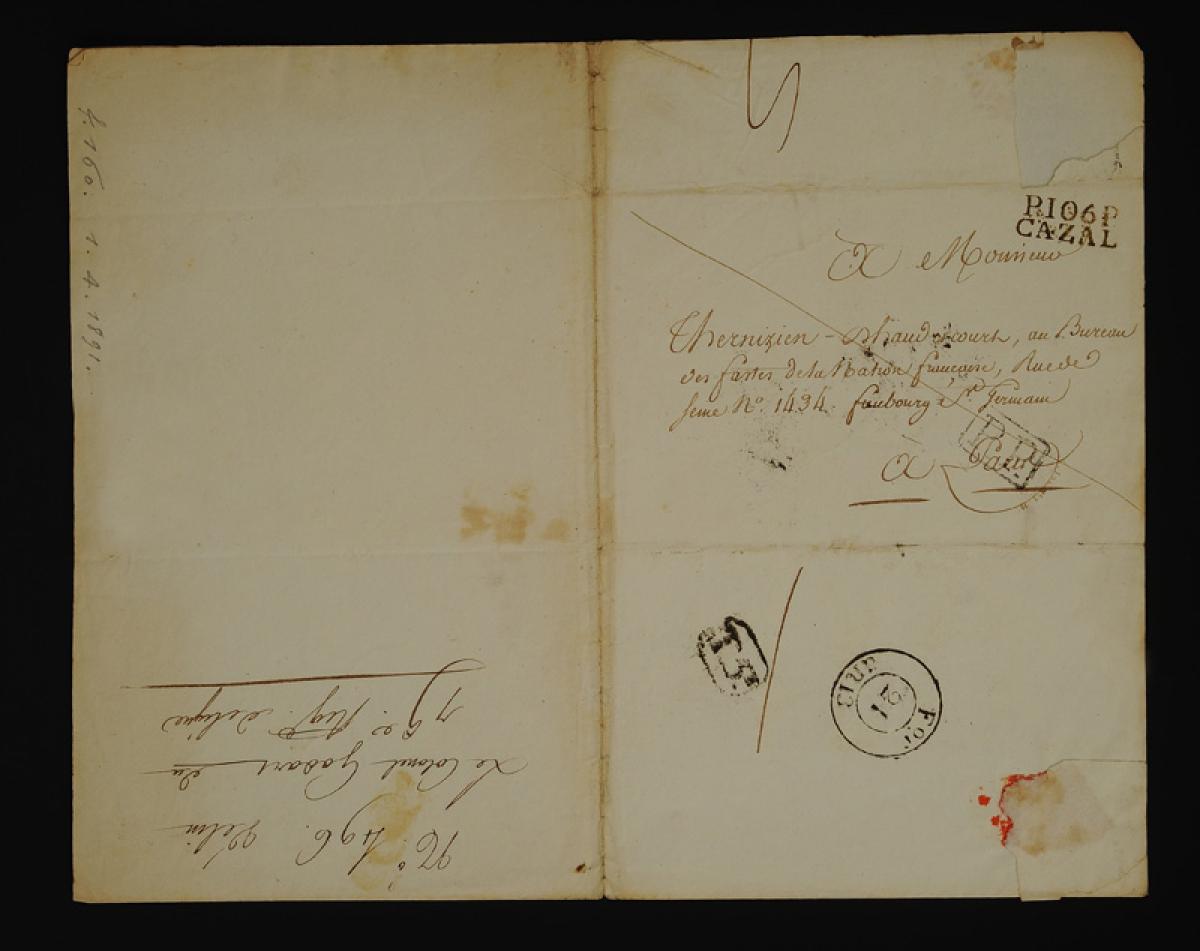 P.106.P
CAZAL
à Monsieur
Thernizien - Dhaudicourt, au Bureau
des fastes de la Nation française, Rue de
seine N.º 1434 faubourg St. Germain
à Paris
P.P.
N.º 496. Vélin
Le Colonel Godart du
79.e Régt. de ligne
1.4.1891.